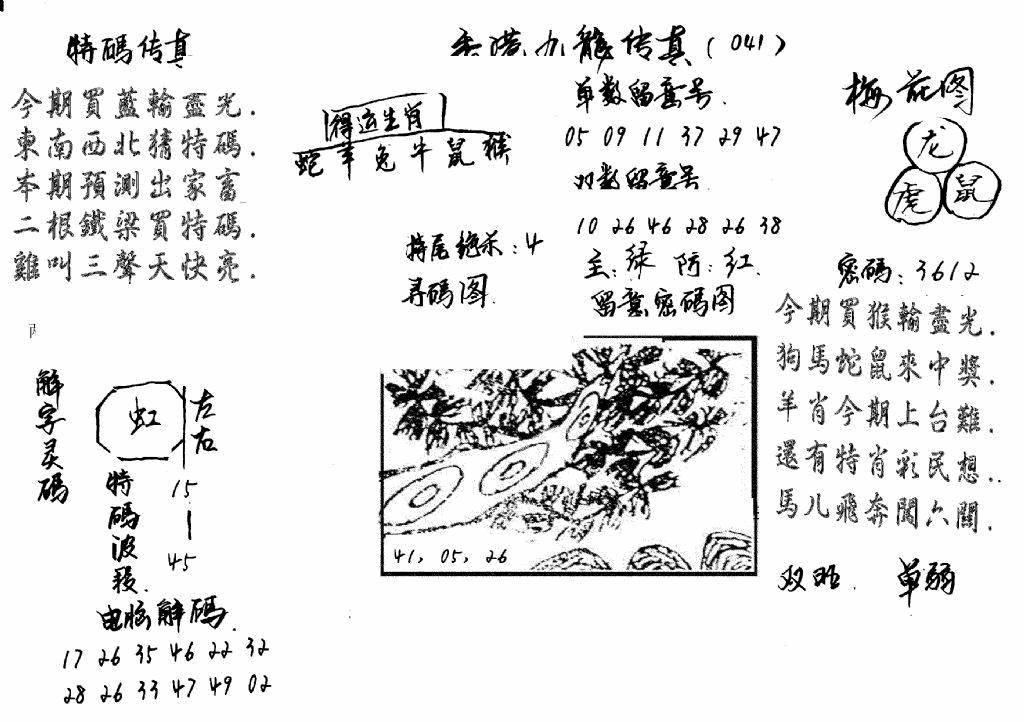 特碼传真
今期買藍輸盡光.
東南西北猜特碼.
本期預測出家畜
二根鐵梁買特碼.
雞叫三聲天快亮.
香港九龍传真(041)
得运生肖
蛇羊兔牛鼠猴
特尾绝杀:4
寻碼图.
单数留意号.
05 09 11 37 29 47
双数留意号
10 26 46 28 26 38
主:绿 防:红.
留意密碼图
41, 05, 26
梅花图
龙
虎 鼠
密碼:3612
今期買猴輸盡光.
狗馬蛇鼠來中獎.
羊肖今期上台難.
還有特肖彩民想..
馬儿飛奔闖六關.
双旺. 单弱
解字灵碼
虹
左右
特碼波段.
15
|
45
电脑解碼.
17 26 35 46 22 32
28 26 33 47 49 02